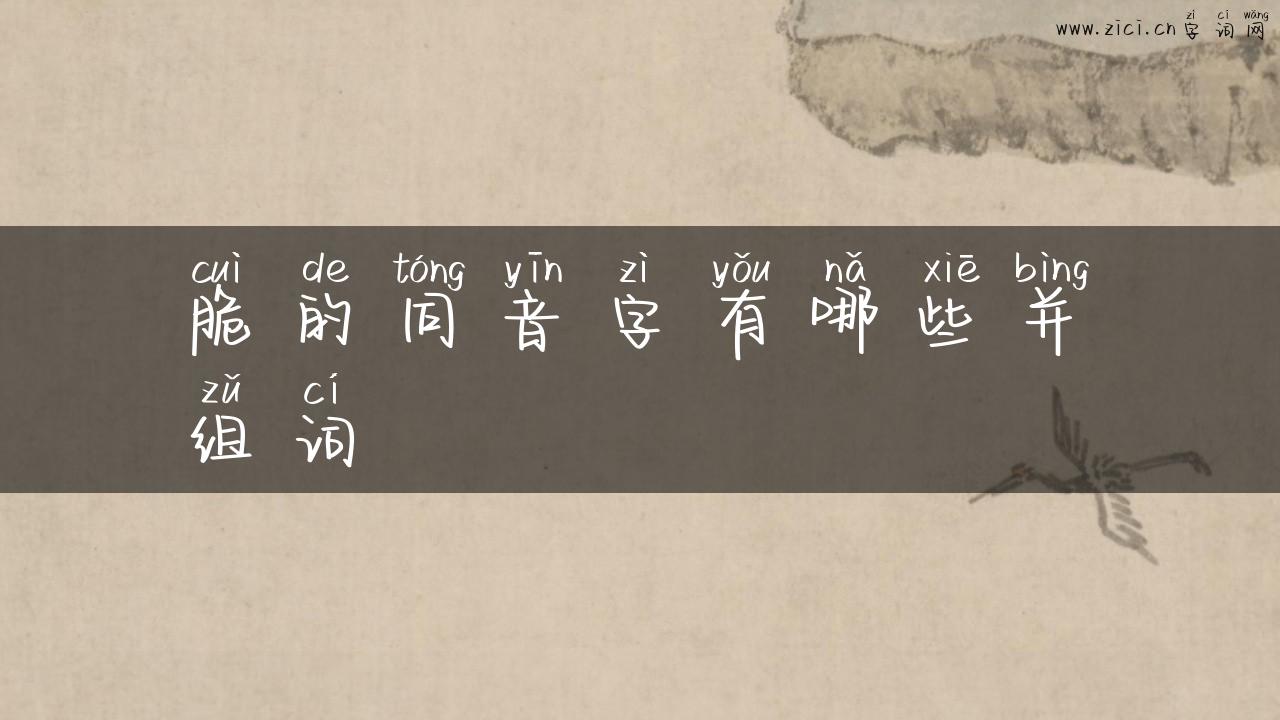 zì cí wǎng
www.zici.cn 字 词 网
cuì de tóng yīn zì yǒu nǎ xiē bìng
脆 的 同 音 字 有 哪 些 并
zǔ cí
组 词